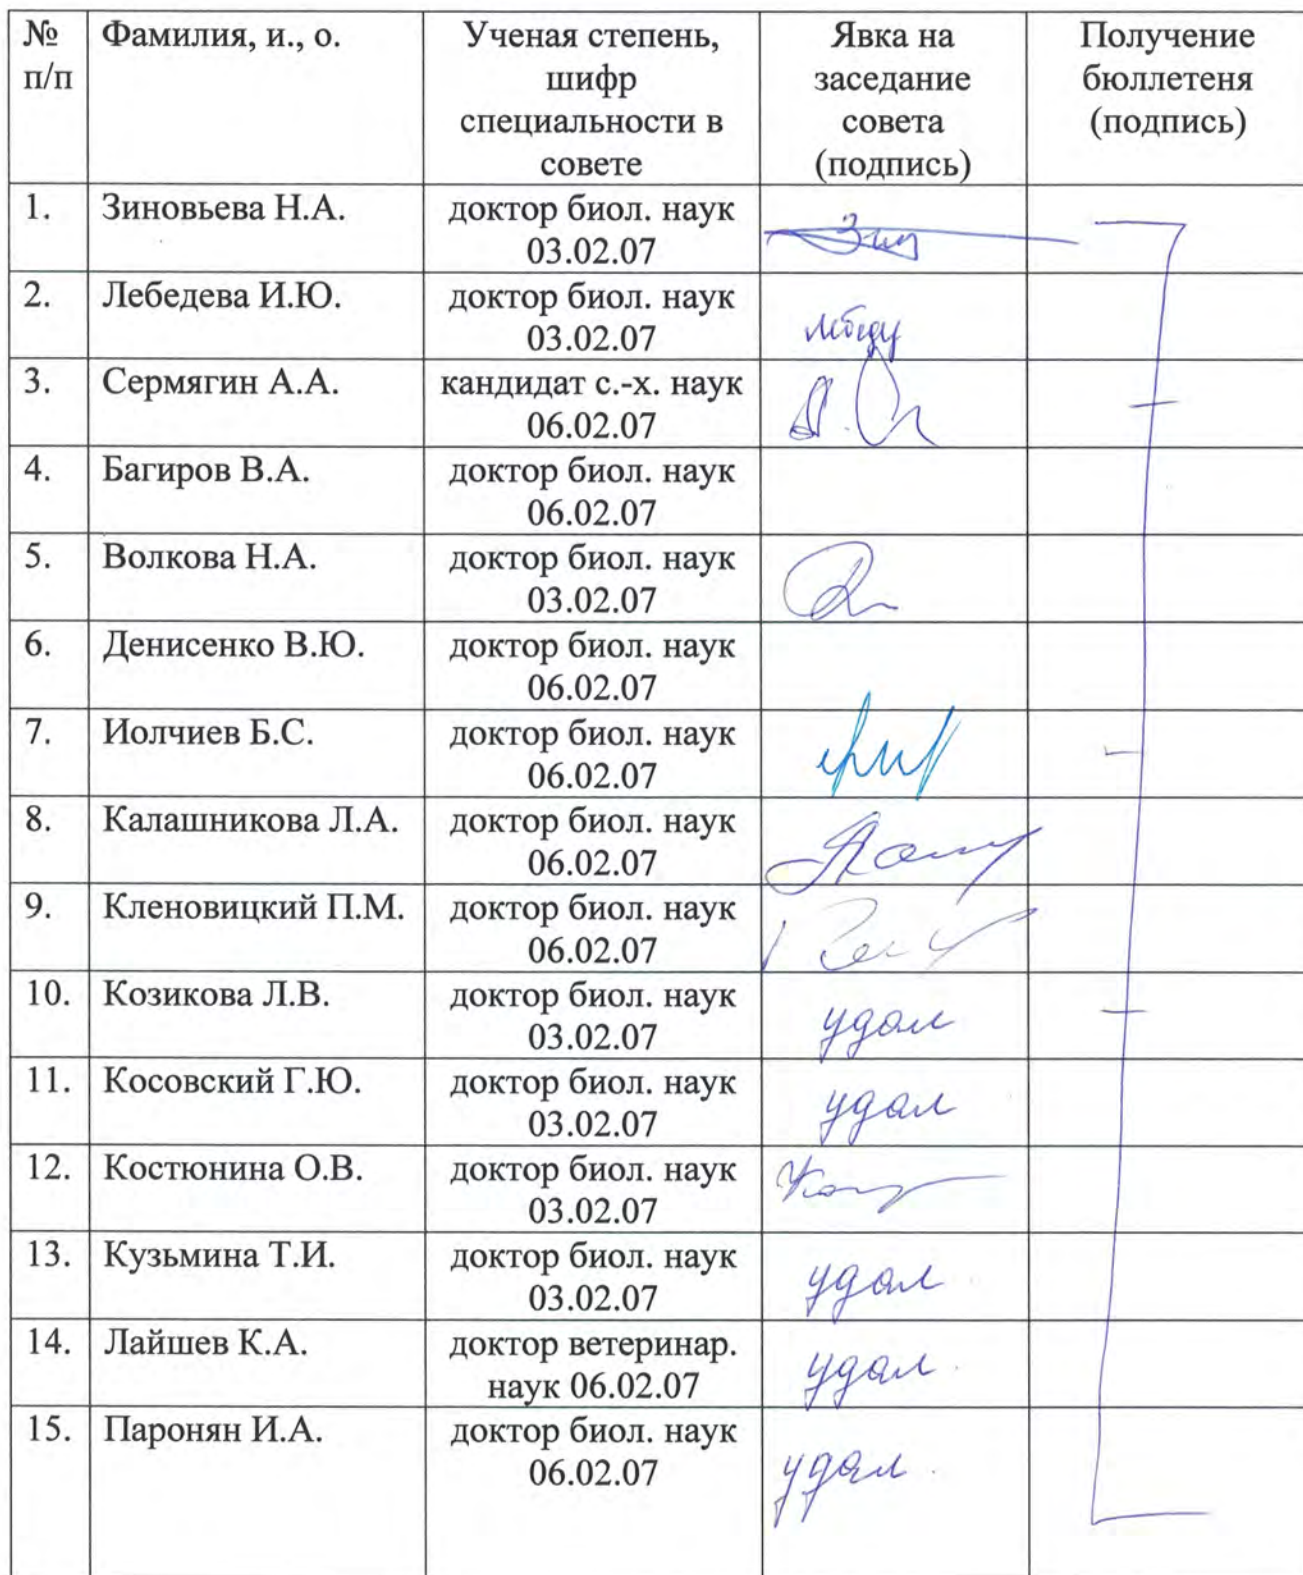 № п/п Фамилия, и., о. Ученая степень, шифр специальности в совете Явка на заседание совета (подпись) Получение бюллетеня (подпись)
1. Зиновьева Н.А. доктор биол. наук
03.02.07
2. Лебедева И.Ю. доктор биол. наук
03.02.07
3. Сермягин А.А. кандидат с.-х. наук
06.02.07
4. Багиров В.А. доктор биол. наук
06.02.07
5. Волкова Н.А. доктор биол. наук
03.02.07
6. Денисенко В.Ю. доктор биол. наук
06.02.07
7. Иолчиев Б.С. доктор биол. наук
06.02.07
8. Калашникова Л.А. доктор биол. наук
06.02.07
9. Кленовицкий П.М. доктор биол. наук
06.02.07
10. Козикова Л.В. доктор биол. наук
03.02.07 удал
11. Косовский Г.Ю. доктор биол. наук
03.02.07 удал
12. Костюнина О.В. доктор биол. наук
03.02.07
13. Кузьмина Т.И. доктор биол. наук
03.02.07 удал.
14. Лайшев К.А. доктор ветеринар.
наук 06.02.07 удал.
15. Паронян И.А. доктор биол. наук
06.02.07 удал.